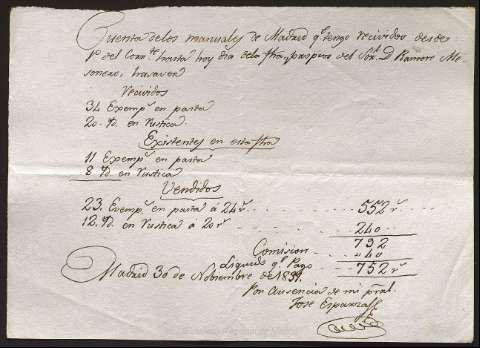 Cuenta de los manuales de Madrid q.e tengo recividos desde
1º del Corr.te hasta hoy dia de la fha, y propios del Sor. D. Ramon Me-
sonero, haraver
Recividos
34 Exemp.s en pasta
20. Yd. en rustica.
Existentes en esta fha
11 Exemp.s en pasta
8 Yd. en rustica
Vendidos
23. Exemp.s en pasta á 24 r.s 552 r.s
12. Yd. en rustica á 20 r.s 240
792
Comision 40
Liquido q.e Pago 752 r.s
Madrid 30 de Noviembre de 1831.
Por ausencia de mi pral.
Jose Esparza